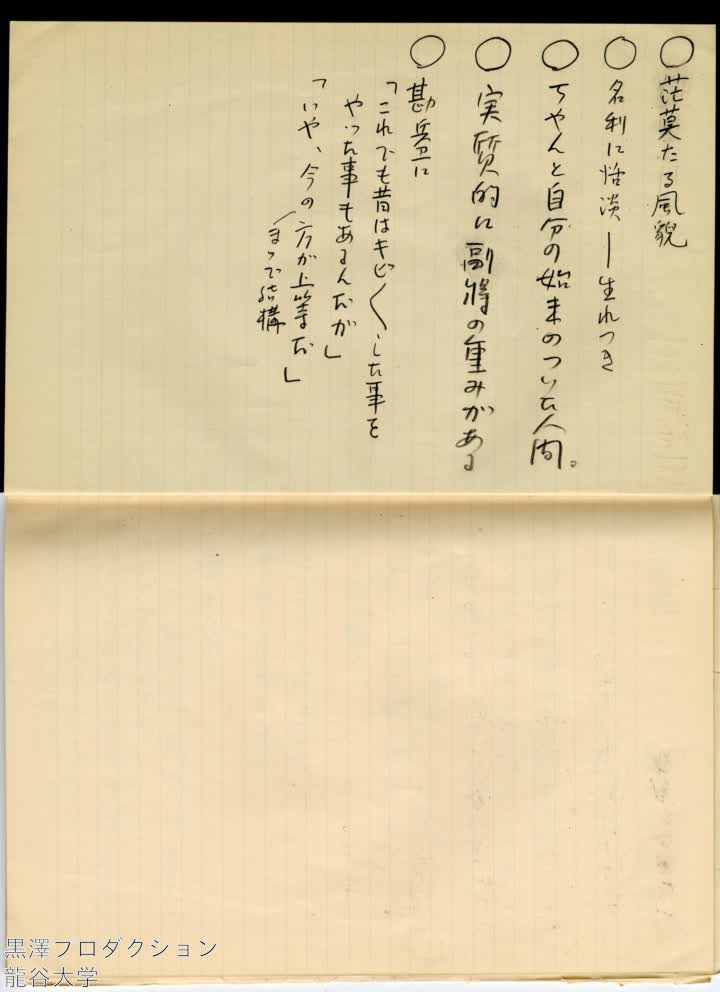 ○ 茫莫たる風貌
○ 名利に恬淡 ― 生れつき
○ ちやんと自分の始末のついた人間。
○ 実質的に副將の重みがある
○ 勘兵卫に
「これでも昔はキビ〱した事を
やつた事もあるんだが」
「いや、今の方が上等だ
まつで結構」
黒澤プロダクション
龍谷大学